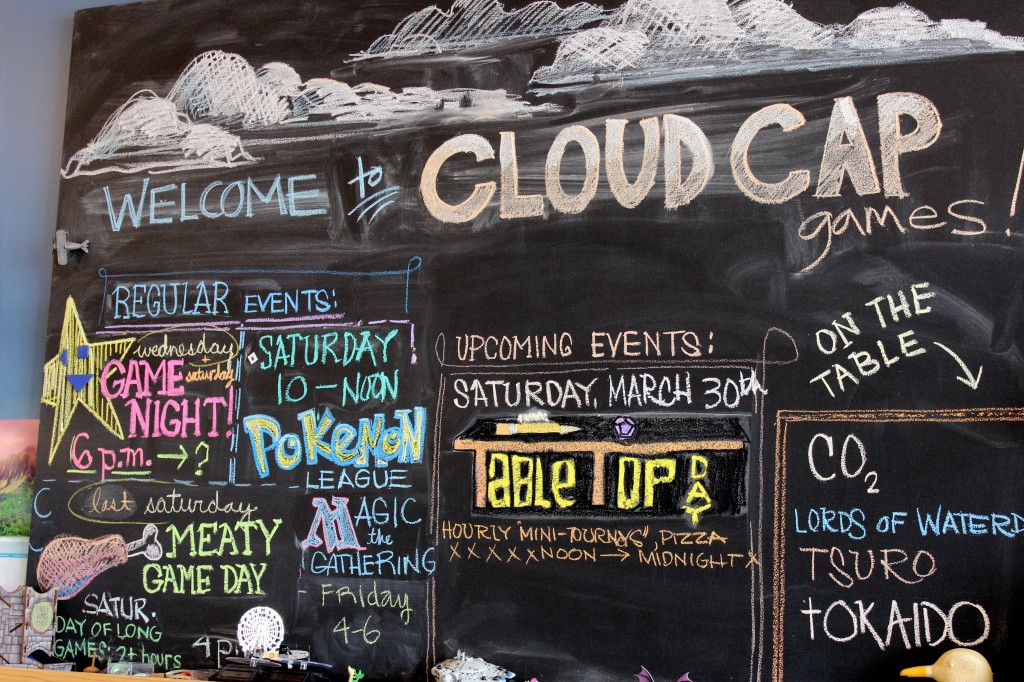 WELCOME to CLOUD CAP
games!
REGULAR EVENTS:
wednesday
+ saturday
GAME
NIGHT!
6 p.m. → ?
SATURDAY
10 – NOON
POKENON
LEAGUE
last saturday
MEATY
GAME DAY
SATUR.
DAY OF LONG
GAMES: 2+ hours
4p
MAGIC
the
GATHERING
FRIday
4-6
UPCOMING EVENTS:
SATURDAY, MARCH 30th
TABLETOP
DAY
HOURLY "MINI-TOURNEYS", PIZZA
X X X X X NOON → MIDNIGHT X
ON THE
TABLE
CO2
LORDS OF WATERD
TSURO
tOKAIDO